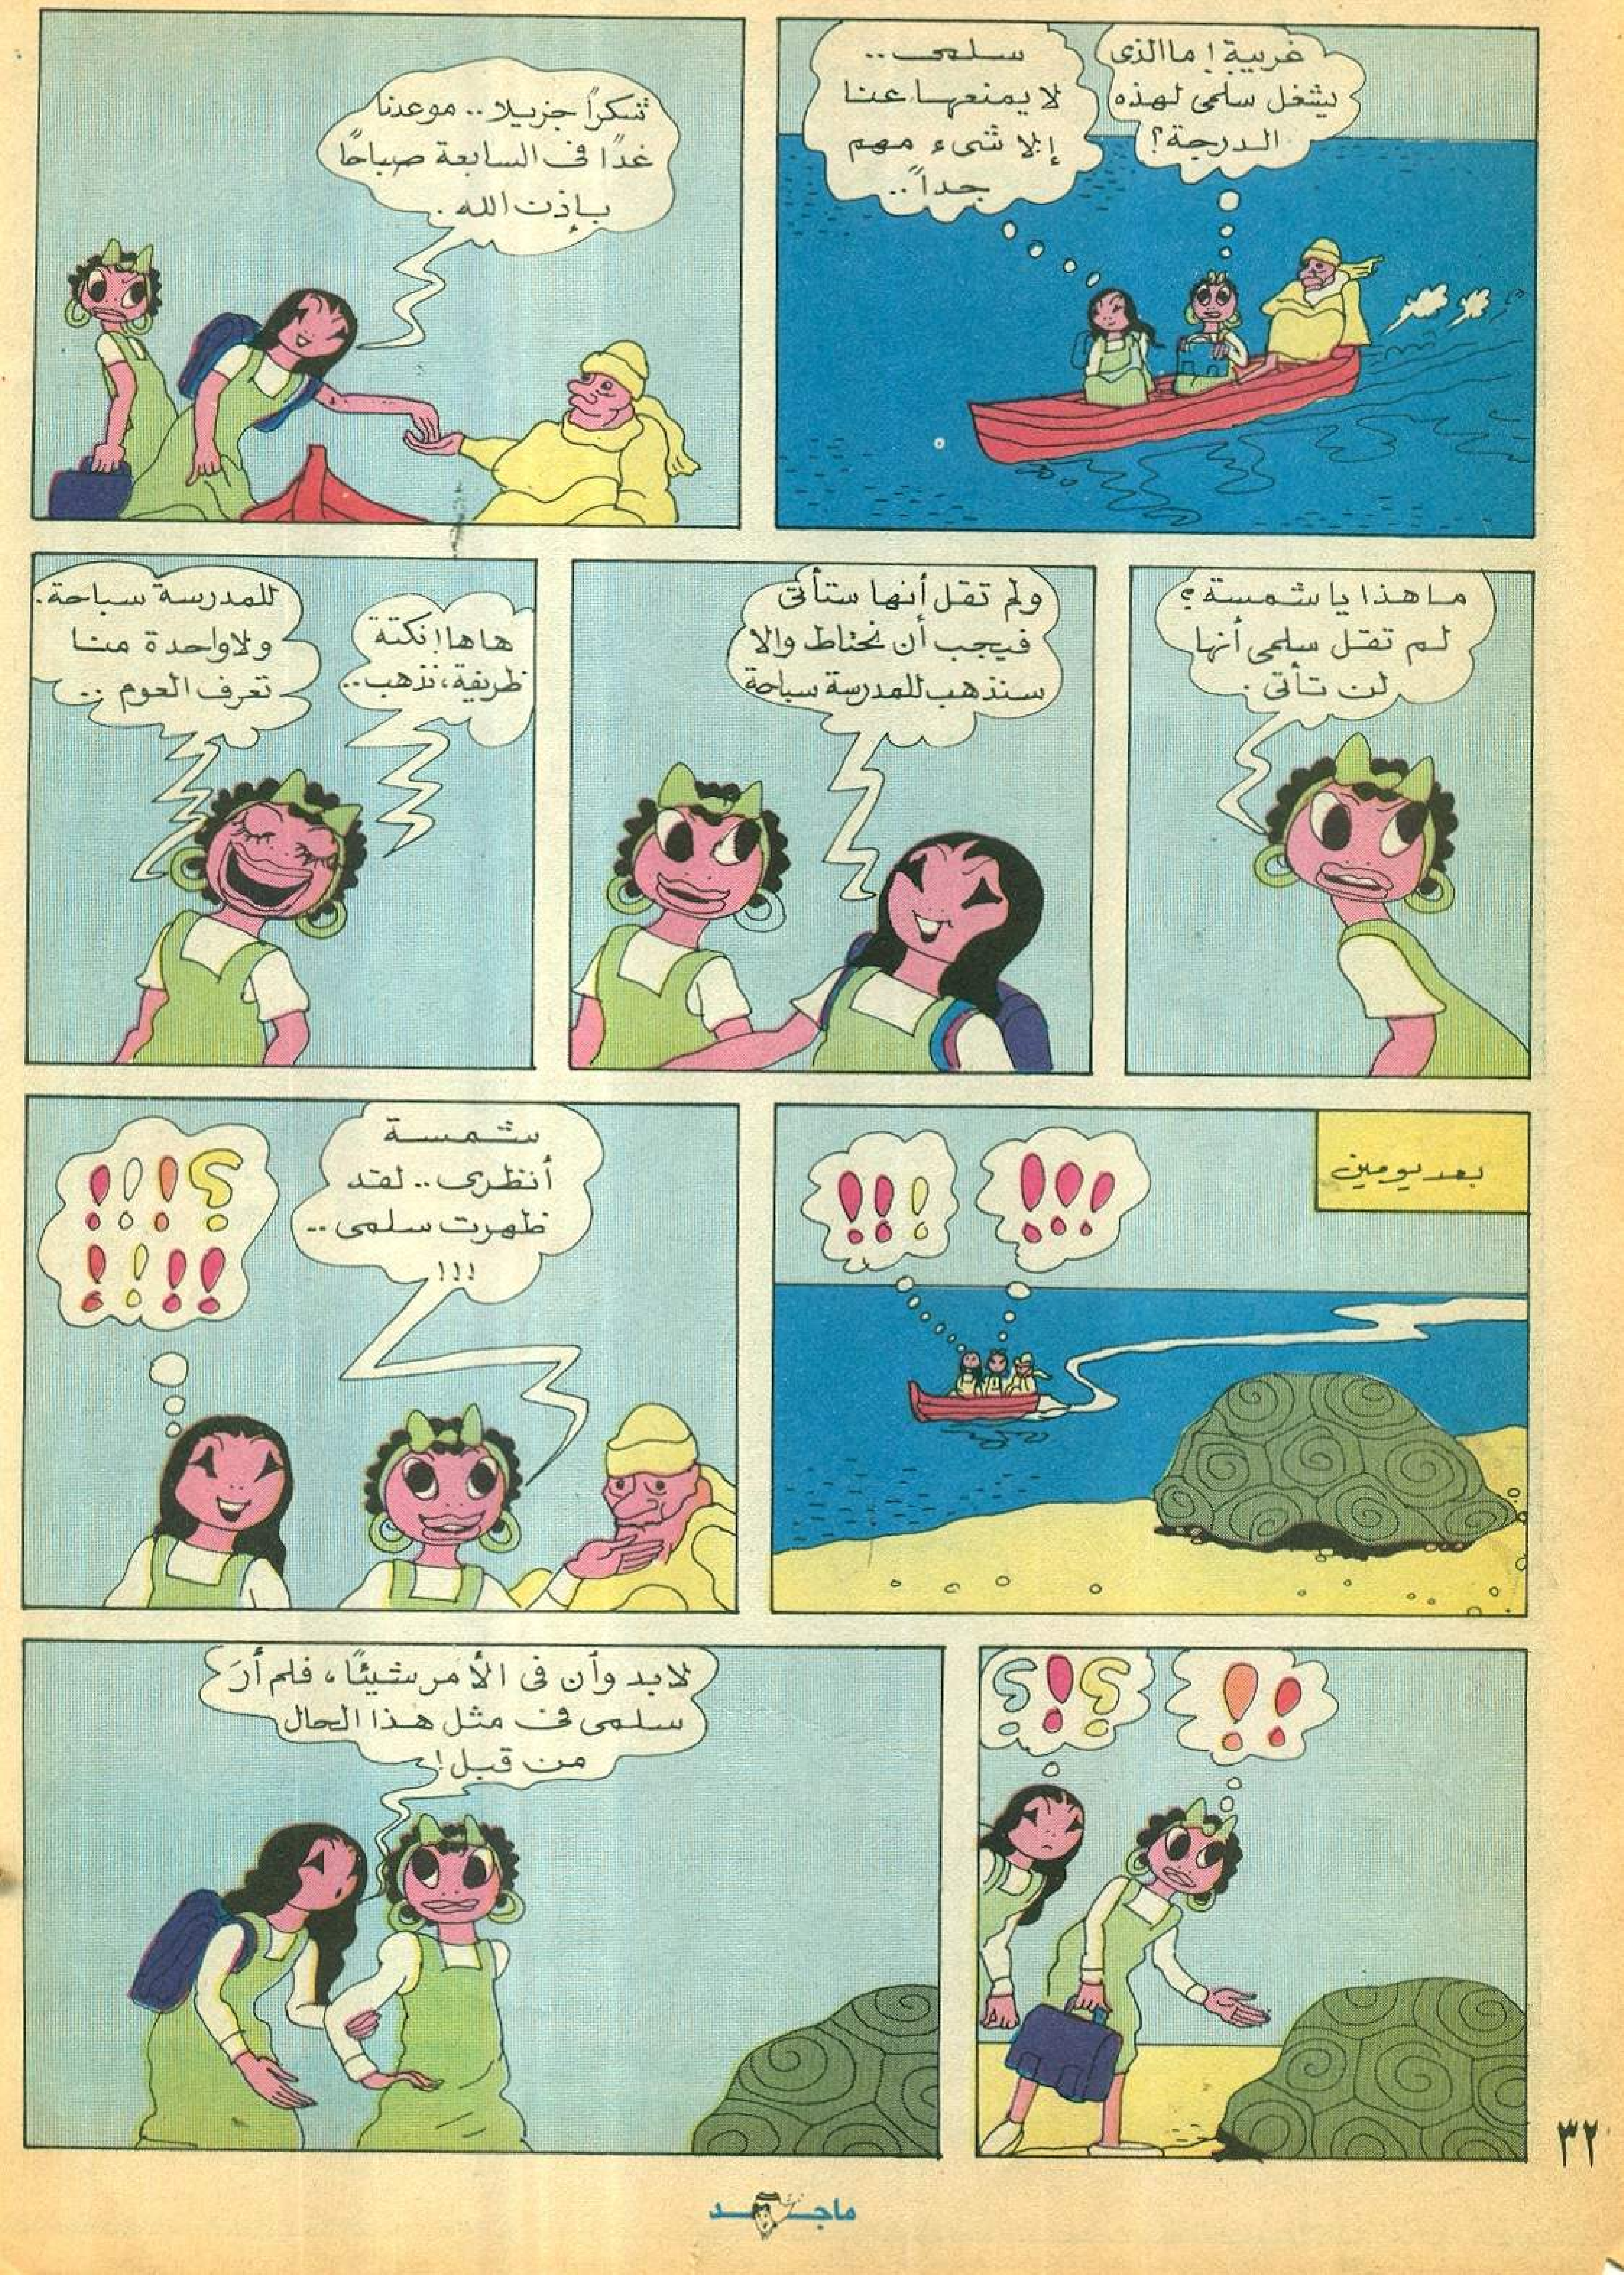 غريبة! ما الذى
يشغل سلمى لهذه
الدرجة؟
سلمى..
لا يمنعها عنا
إلا شىء مهم
جداً..
شكراً جزيلا.. موعدنا
غدًا فى السابعة صباحًا
بإذن الله.
ما هذا يا شمسة؟
لم تقل سلمى أنها
لن تأتى.
ولم تقل أنها ستأتى
فيجب أن نحتاط والا
سنذهب للمدرسة سباحة
هاها! نكتة
ظريفة، نذهب..
للمدرسة سباحة.
ولا واحدة منا
تعرف العوم..
بعد يومين
!!!
!!!
شمسة
أنظرى.. لقد
ظهرت سلمى..
!!!
؟!!!
!!!!
!!
؟!؟
لابد وأن فى الأمر شيئًا، فلم أرَ
سلمى فى مثل هذا الحال
من قبل!
٣٢
ماجد